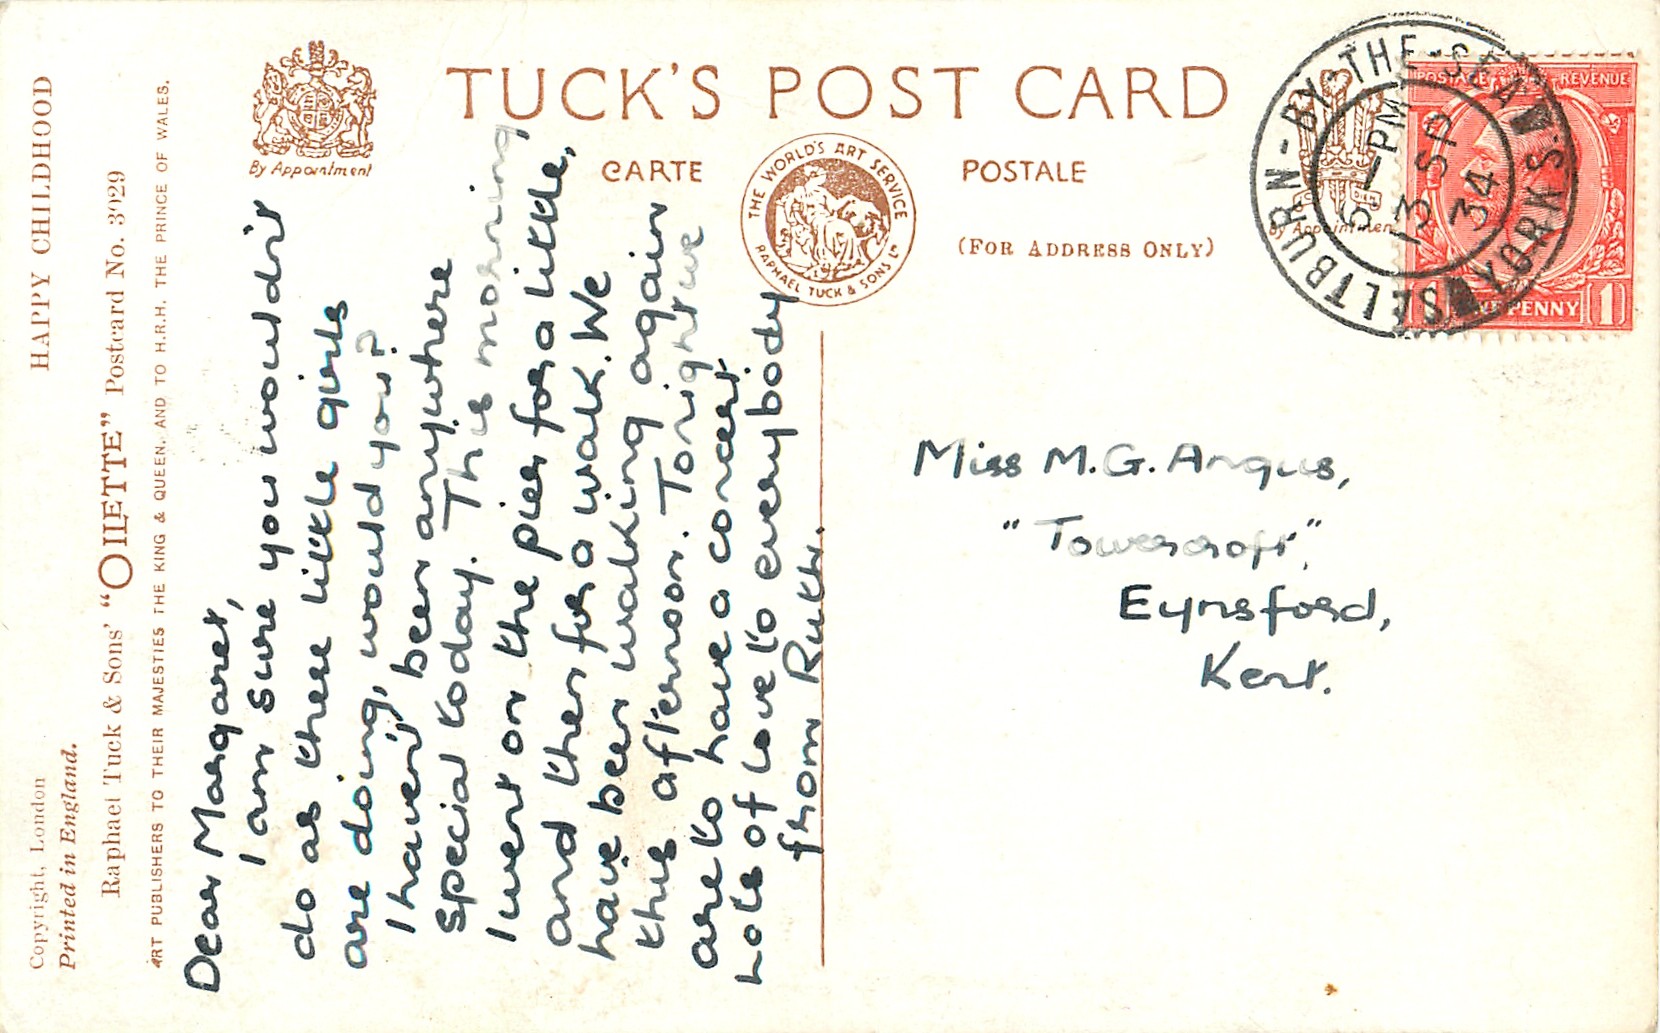 HAPPY CHILDHOOD
Copyright, London
Printed in England.
Raphael Tuck & Sons' "OILETTE" Postcard No. 3929
ART PUBLISHERS TO THEIR MAJESTIES THE KING & QUEEN, AND TO H.R.H. THE PRINCE OF WALES.
By Appointment
TUCK'S POST CARD
CARTE POSTALE
THE WORLD'S ART SERVICE
RAPHAEL TUCK & SONS Ld
(FOR ADDRESS ONLY)
By Appointment
SALTBURN-BY-THE-SEA
YORKS.
6-PM
13 SP
34
POSTAGE REVENUE
ONE PENNY 1
Dear Margaret,
I am sure you wouldn't
do as these little girls
are doing, would you?
I haven't been anywhere
special today. This morning
I went on the pier for a little,
and then for a walk. We
have been walking again
this afternoon. Tonight we
are to have a concert
Lots of love to everybody
from Ruth.
Miss M.G. Angus,
"Towercroft",
Eynsford,
Kent.